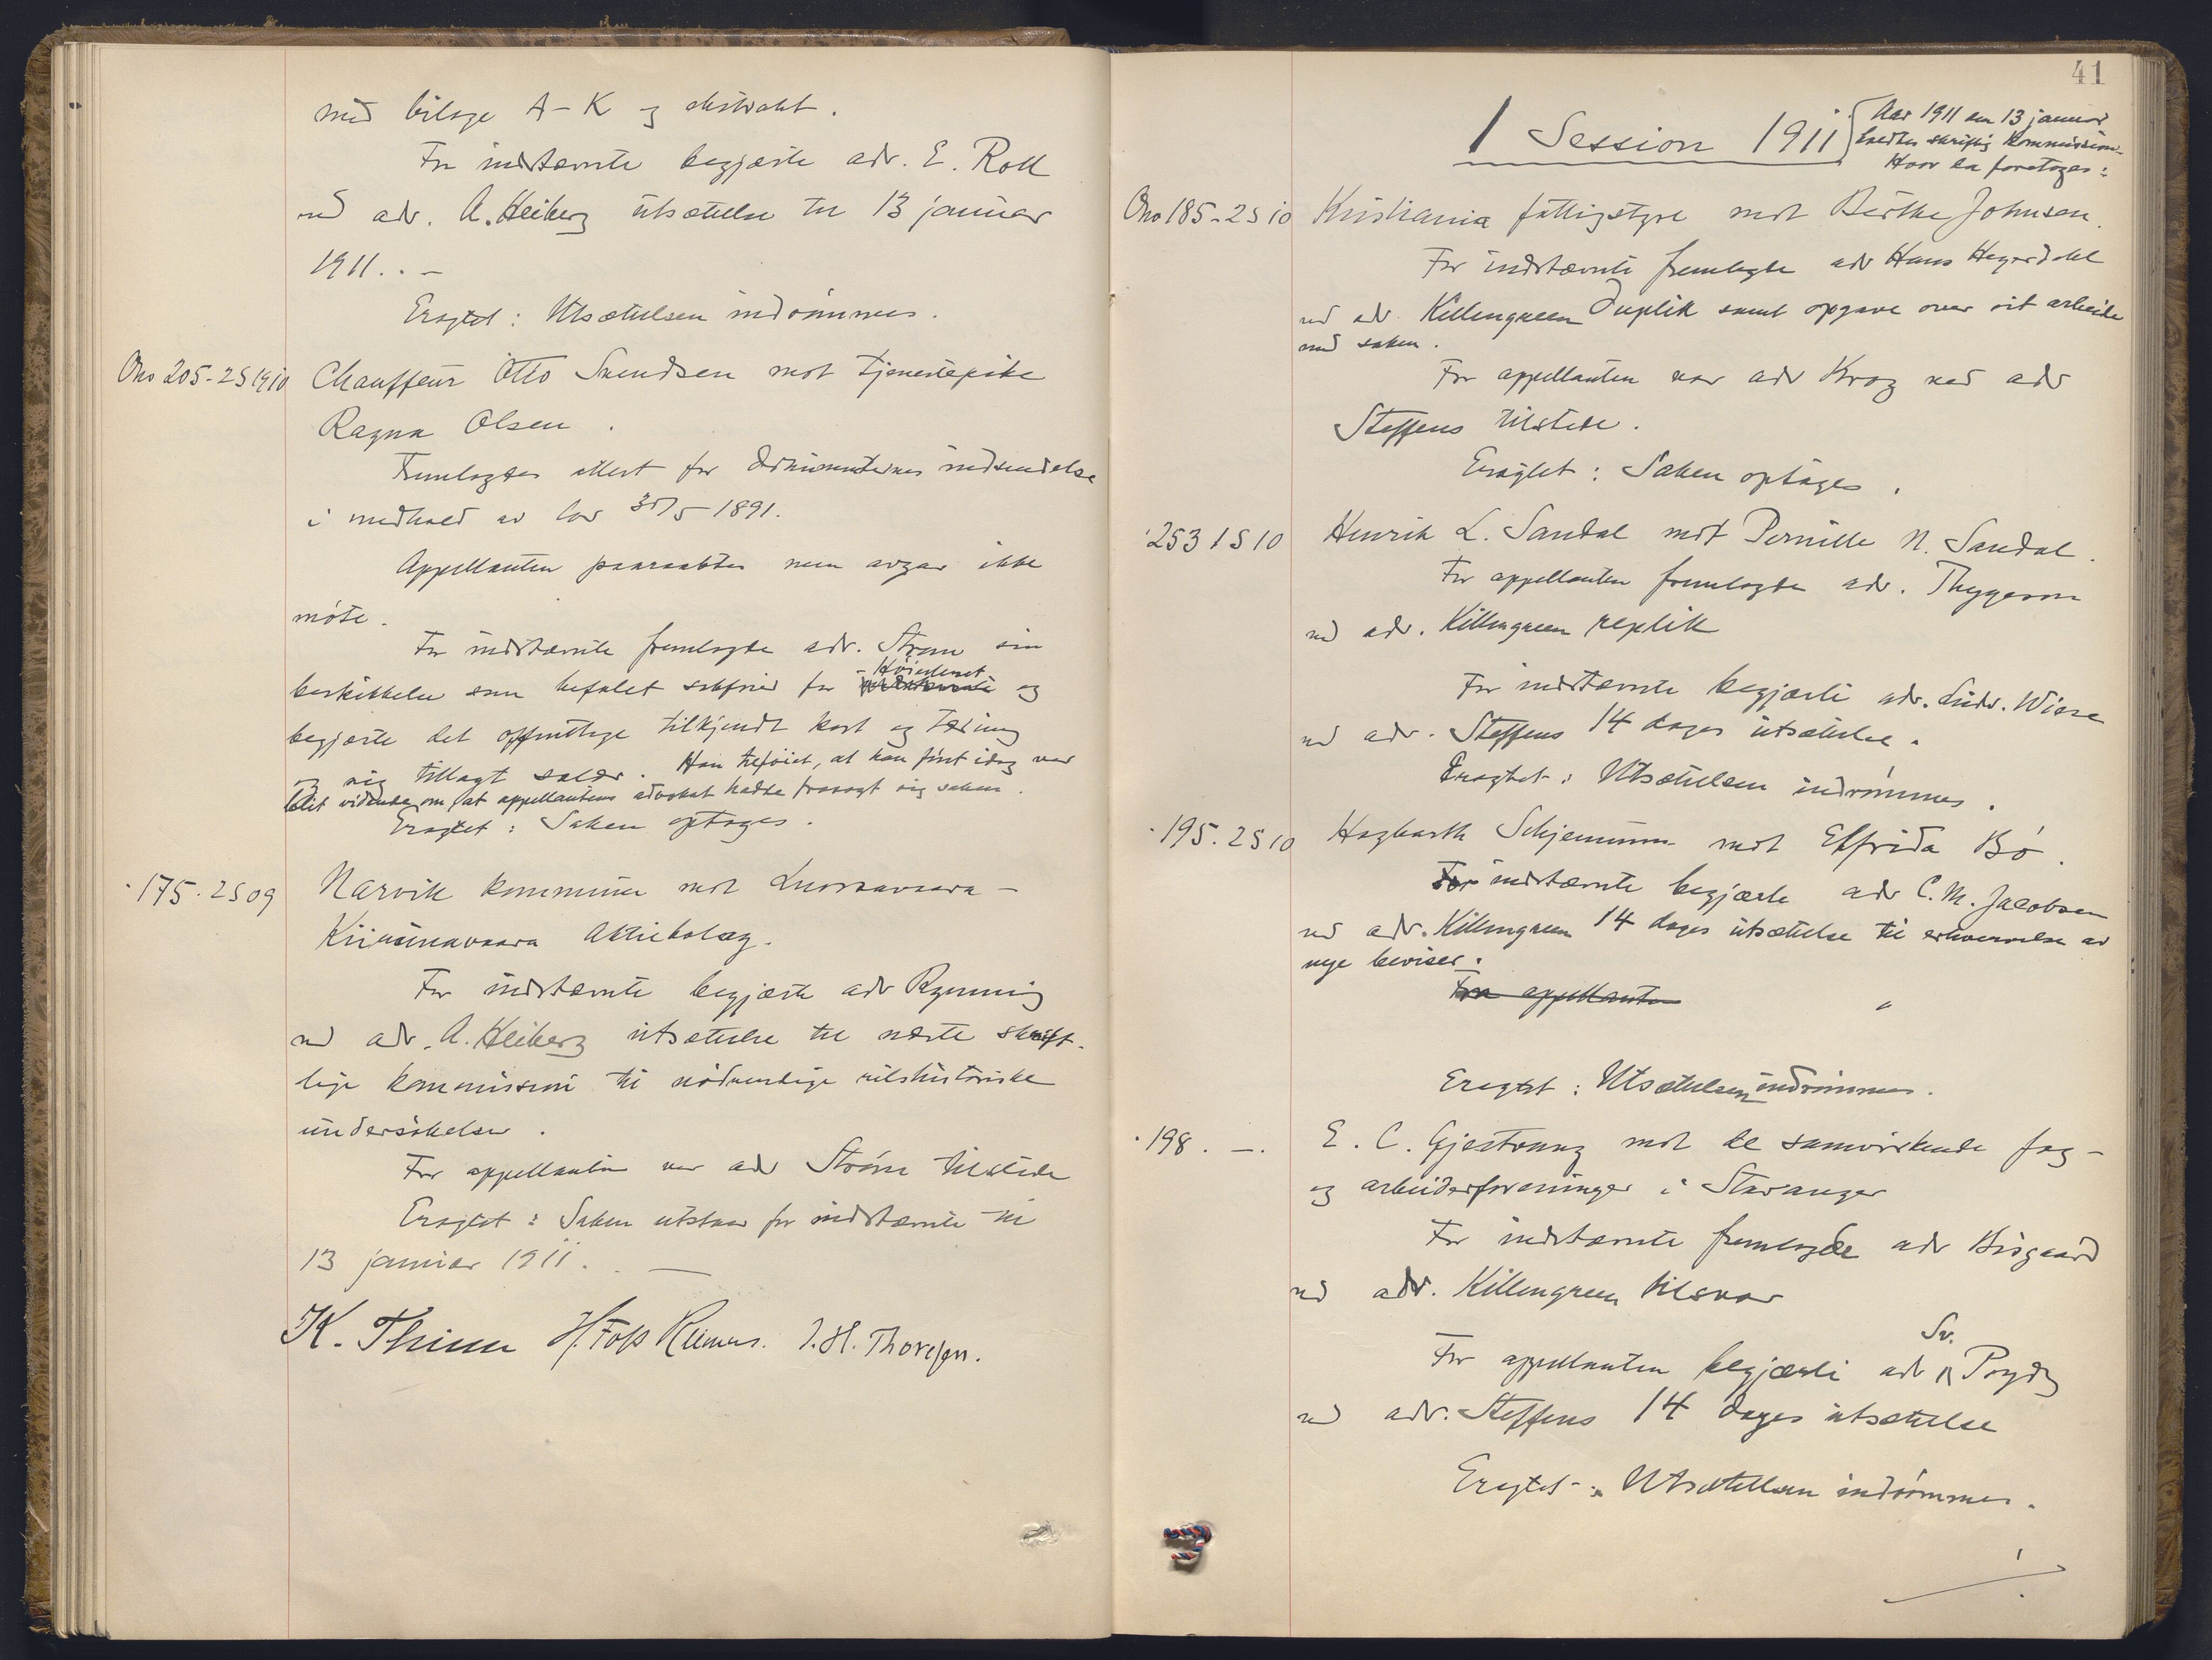 med bilage A-K og ekstrakt.
For indstævnte begjærte adv. E. Roll
ved adv. A. Heiberg utsættelse til 13 januar
1911. . –
Eragtet: Utsættelsen indrømmes.
Ono 205-2S1910 Chauffeur Otto Svendsen mot tjenestepike
Ragna Olsen.
Fremlagdes attest for dokumenternes indsendelse
i medhold av lov 30/5 1891.
Appellanten paaraabtes men avgav ikke
møte.
For indstævnte fremlagde adv. Strøm sin
Høiesteret
beskikkelse som befalet sakfører for indstævnte og
begjærte det offentlige tilkjendt kost og tæring
og sig tillagt salær. Han tilføiet, at han først idag var
blit vidende om, at appellantens advokat hadde frasagt sig saken.
Eragtet: Saken optages.
175. 2S09 Narvik kommune mot Luossavaara –
Kiirunavaara Aktiebolag.
For indstævnte begjærte adv Rynning
ved adv. A. Heiberg utsættelse til næste skrift-
lige kommission til nødvendige retshistoriske
undersøkelser.
For appellanten var adv Strøm tilstede
Eragtet: Saken utstaar for indstævnte til
13 januar 1911. . —
K. Thinn H. Foss Reimers. J. H. Thoresen.
41
1 Session 1911
Aar 1911 den 13 januar
holdtes skriftlig Kommission.
Hvor da foretoges:
Ono 185-2S10 Kristiania fattigstyre mot Berthe Johnsen.
For indstævnte fremlagde adv Hans Hagerdahl
ved adv. Killengreen Duplik samt opgave over sit arbeide
med saken.
For appellanten var adv Krog ved adv
Steffens tilstede.
Eragtet: Saken optages.
253 1S10 Henrik L. Sandal mot Pernille N. Sandal.
For appellanten fremlagde adv. Thygeson
ved adv. Killengreen replik
For indstævnte begjærte adv. Ludv. Wiese
ved adv. Steffens 14 dages utsættelse.
Eragtet: Utsættelsen indrømmes.
195. 2S10 Hagbarth Schjemmum mot Elfrida Bö.
For indstævnte begjærte adv C. M. Jacobsen
ved adv. Killengreen 14 dages utsættelse til erhvervelse av
nye beviser.
For appellanten
Eragtet: Utsættelsen indrømmes.
198. –. E. C. Gjestvang mot de samvirkende fag-
og arbeiderforeninger i Stavanger
For indstævnte fremlagde adv Bisgaard
ved adv. Killengreen tilsvar
Sv.
For appellanten begjærte adv Prydz
ved adv. Steffens 14 dages utsættelse
Eragtet: Utsættelsen indrømmes.